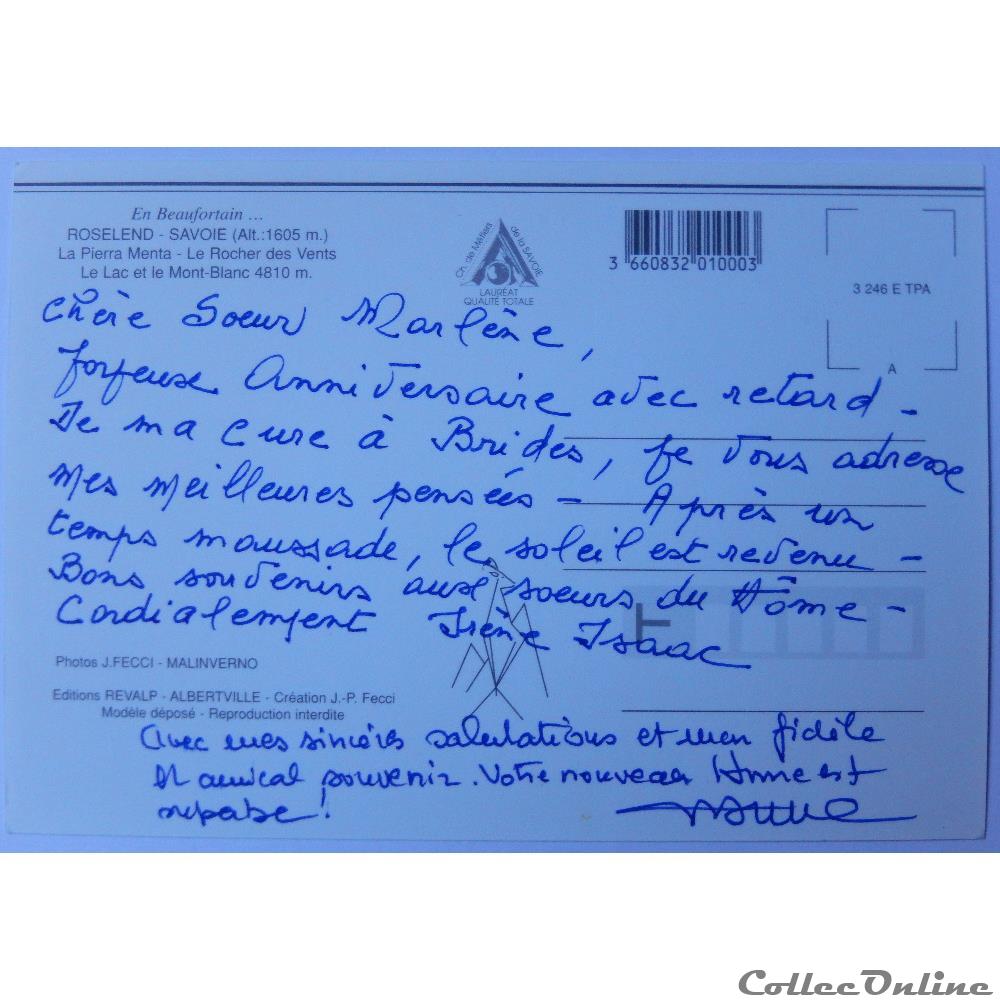 En Beaufortain ...
ROSELEND - SAVOIE (Alt.:1605 m.)
La Pierra Menta - Le Rocher des Vents
Le Lac et le Mont-Blanc 4810 m.
Ch. de Métiers de la SAVOIE
LAURÉAT
QUALITÉ TOTALE
3 660832 010003
3 246 E TPA
A
Chère Soeur Marlène,
Joyeuse Anniversaire avec retard -
De ma cure à Brides, je vous adresse
mes meilleures pensées - Après un
temps maussade, le soleil est revenu -
Bons souvenirs aux soeurs du Hôme -
Cordialement Irène Isaac
Photos J.FECCI - MALINVERNO
Editions REVALP - ALBERTVILLE - Création J.-P. Fecci
Modèle déposé - Reproduction interdite
Avec mes sincères salutations et mon fidèle
et amical souvenir. Votre nouveau Home est
superbe!
CollecOnline